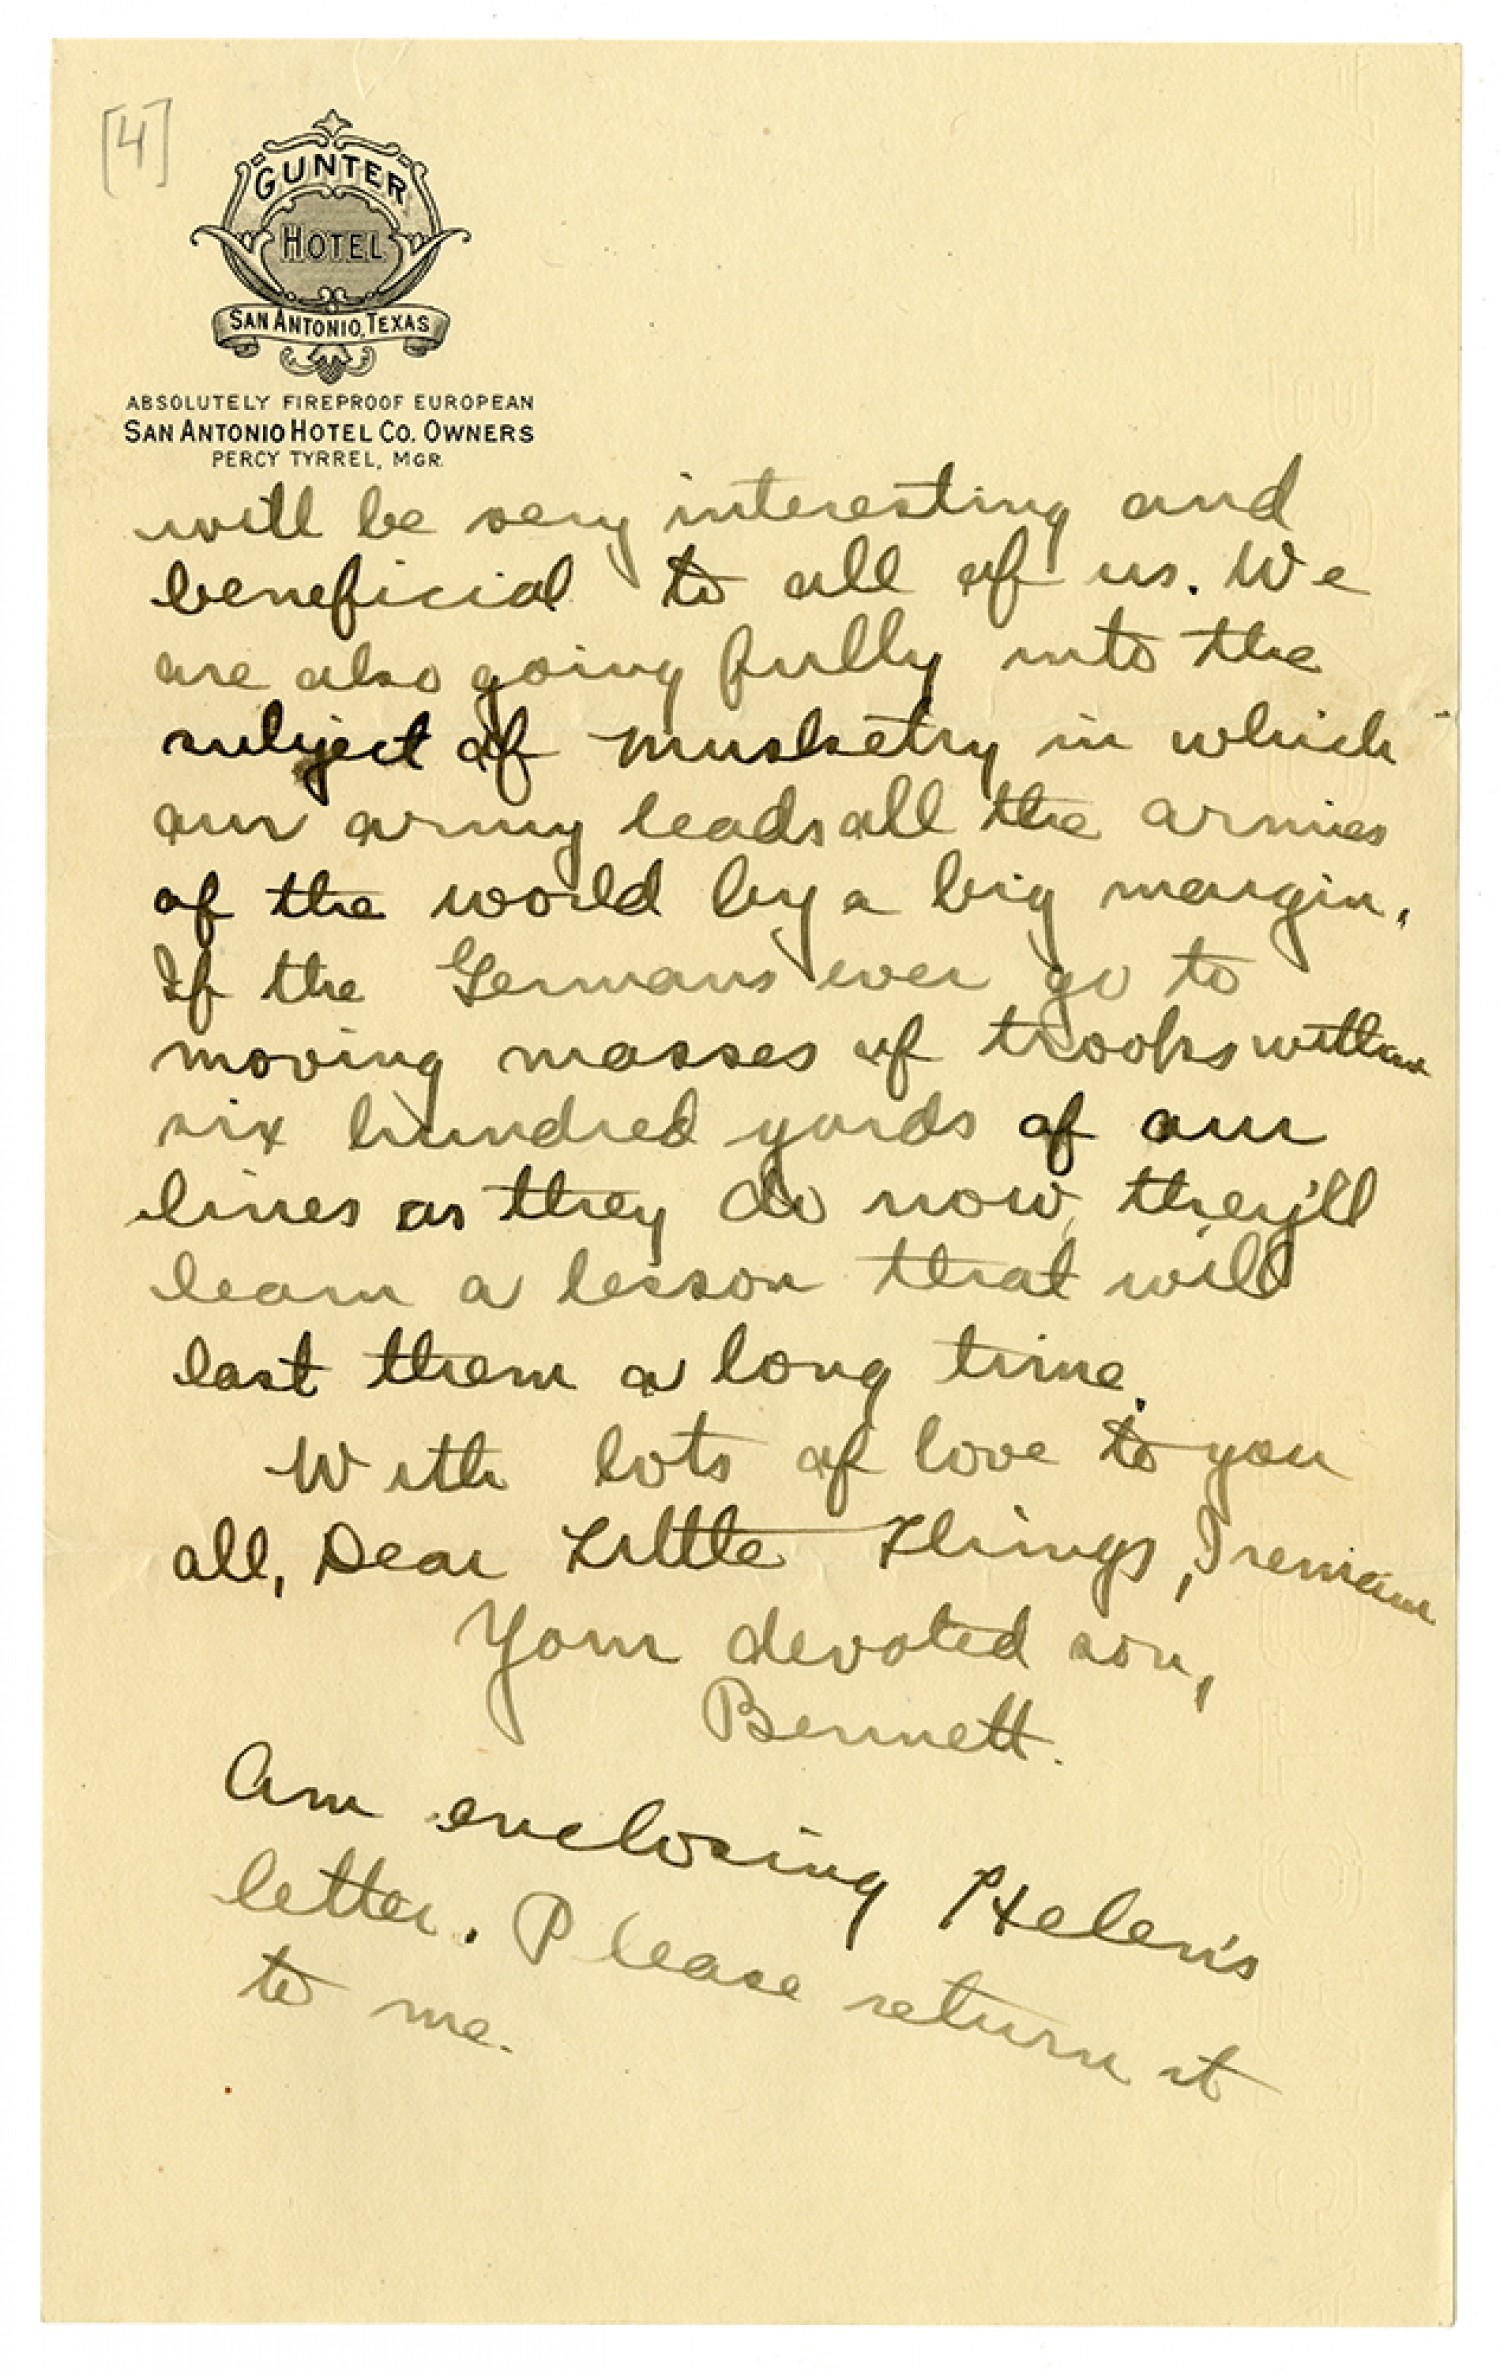 [4]
GUNTER
HOTEL
SAN ANTONIO, TEXAS
ABSOLUTELY FIREPROOF EUROPEAN
SAN ANTONIO HOTEL CO. OWNERS
PERCY TYRREL, MGR.
will be very interesting and
beneficial to all of us. We
are also going fully into the
subject of musketry in which
our army leads all the armies
of the world by a big margin.
If the Germans ever go to
moving masses of troops within
six hundred yards of our
lines as they do now, they'll
learn a lesson that will
last them a long time.
With lots of love to you
all, Dear Little Things, I remain
Your devoted son,
Bennett.
Am enclosing Helen's
letter. Please return it
to me.